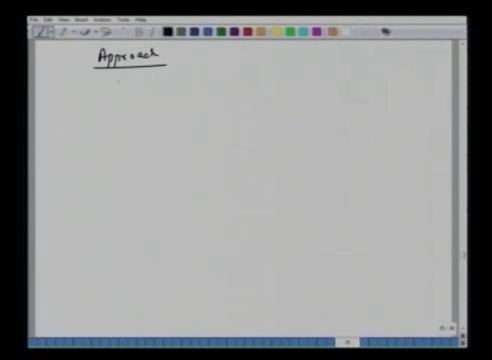 File Edit View Insert Actions Tools Help
Approach